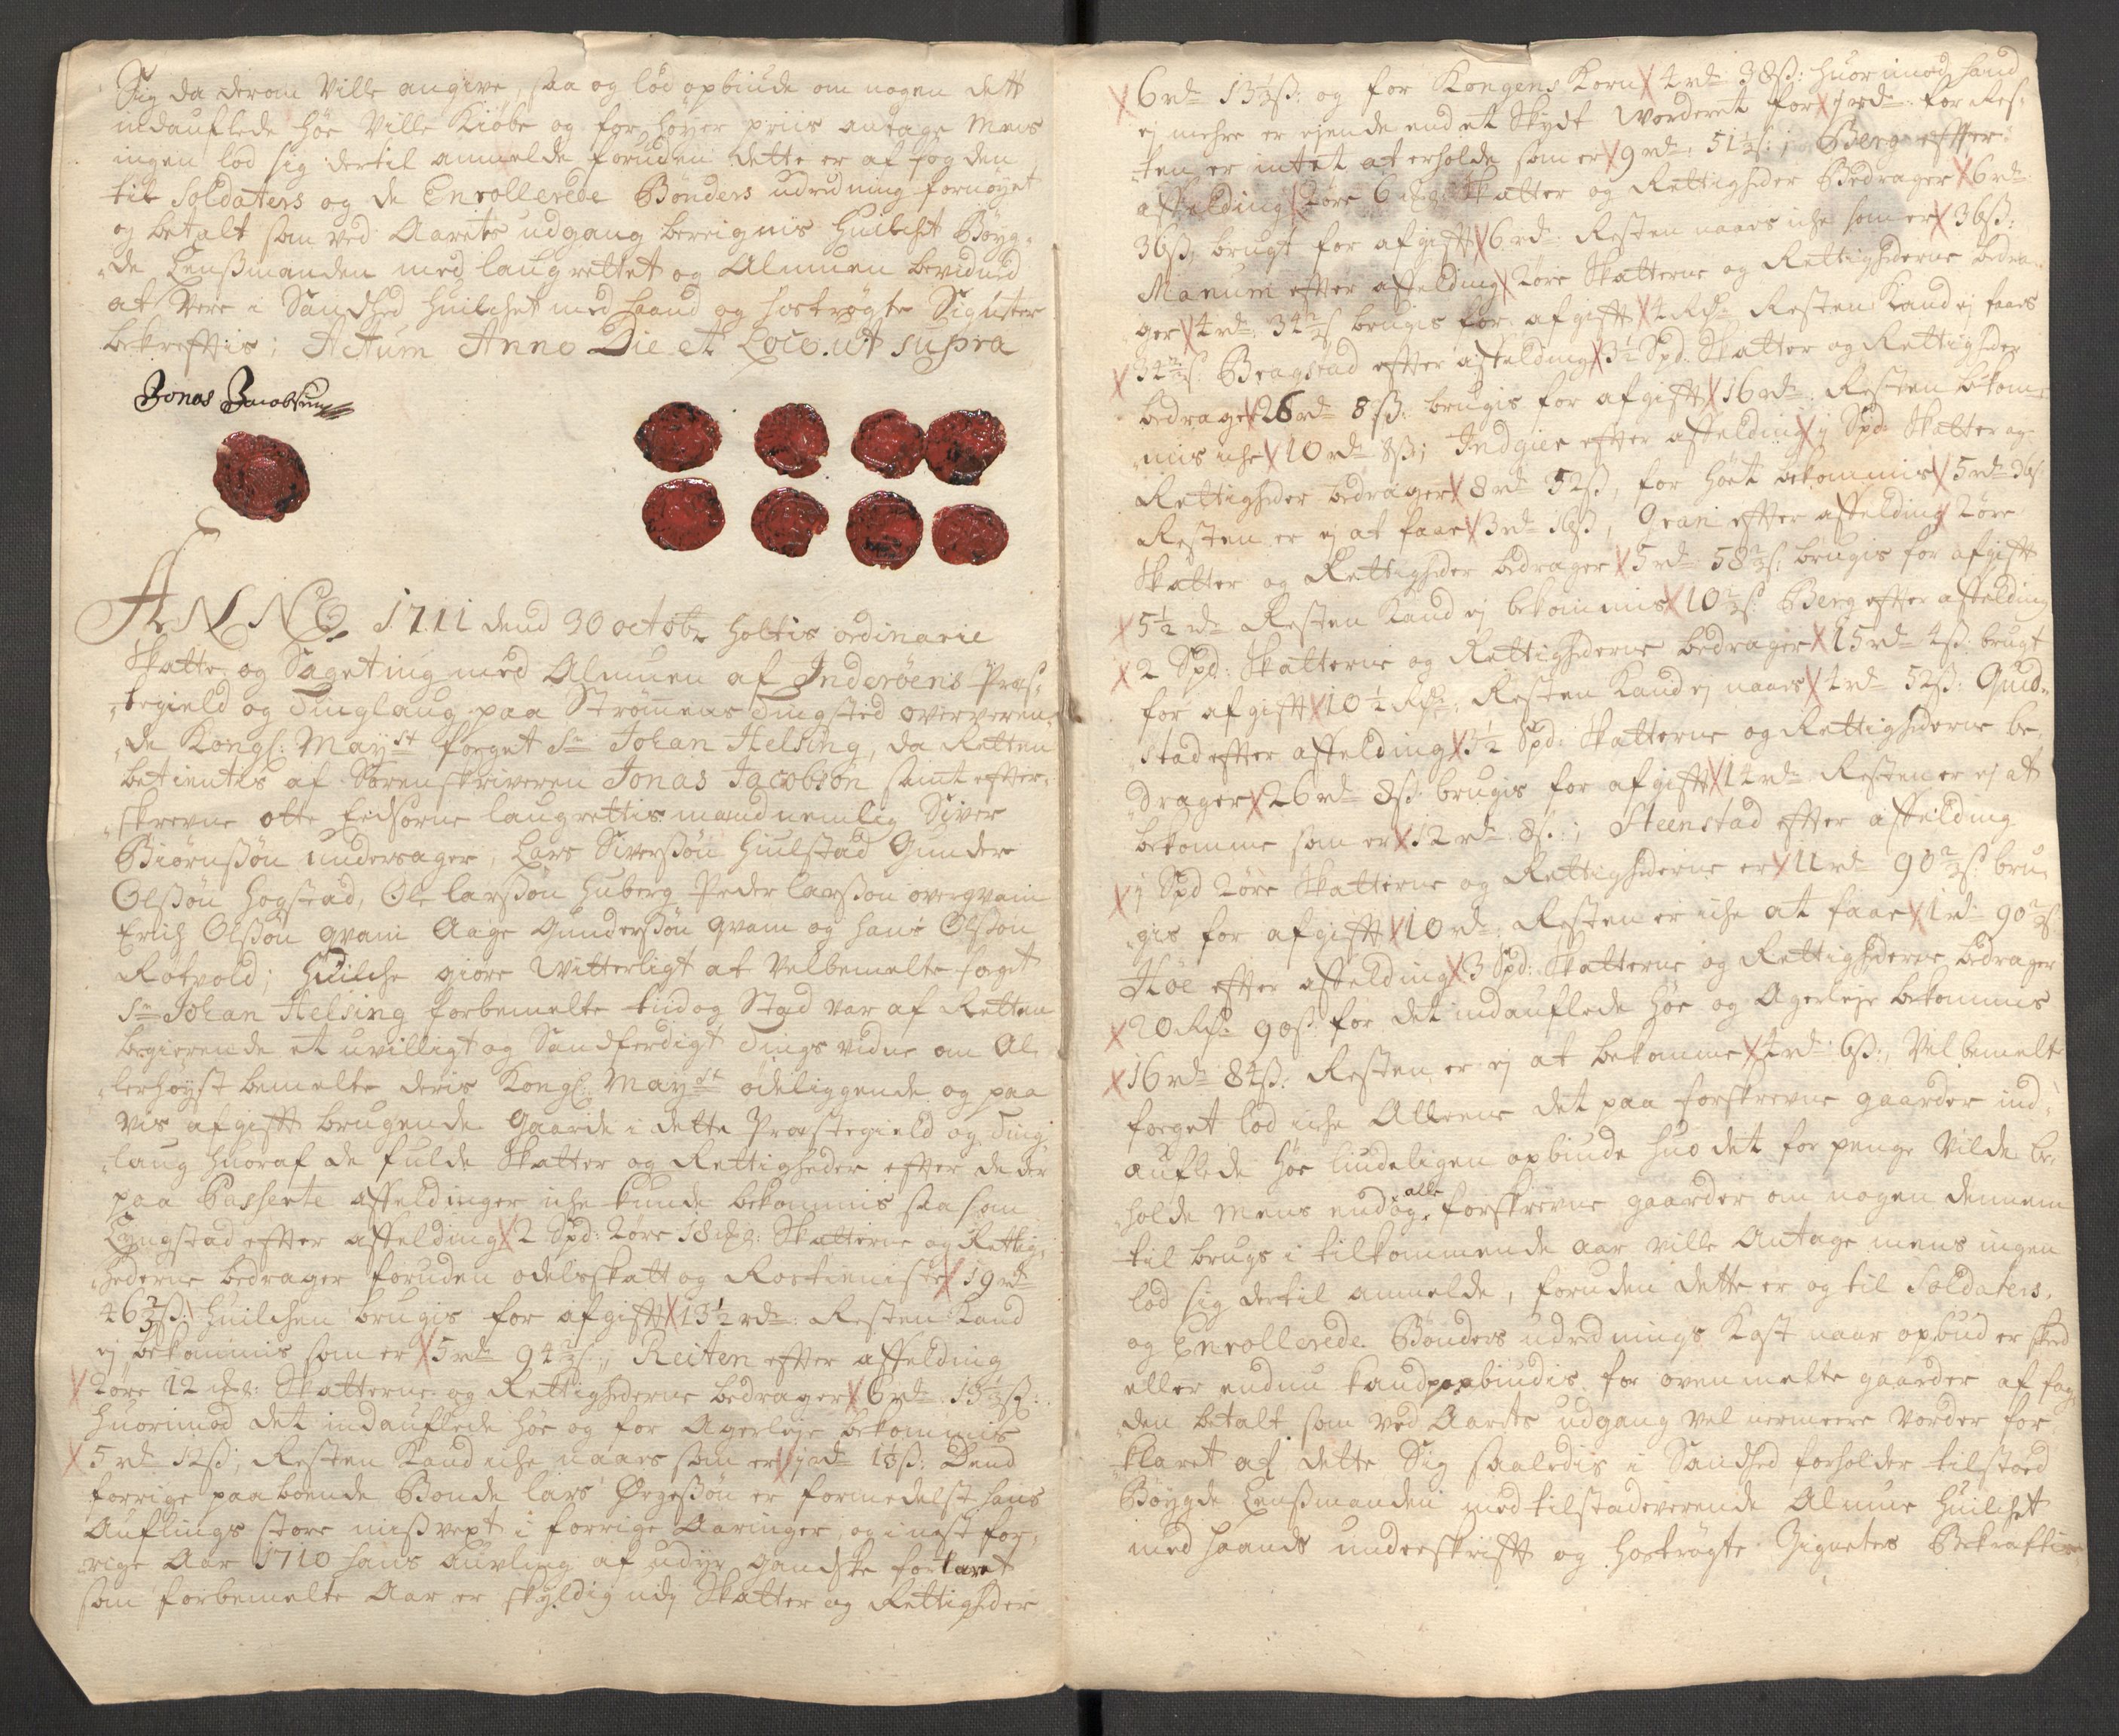 Sig da derom Ville angive, saa og lod opbiude om nogen dett
indauflede höe Ville Kiöbe og for höyer priis antage Mens
ingen lod sig dertil anmelde foruden dette er af fogden
til Soldaters og de Enrollerede Bönders udredning fornöyet
og betalt som ved Aarets udgang bereignis Huilchet Böyg¬
de Lensmanden med laugrettet og Almuen bevidned
at Vere i Sandhed huilchet med haand og hoströgte Signeter
bekrefftis; Actum Anno Die et Loco ut supra
Jonas Jacobsøn
ANNO 1711 dend 30 octobr holtis ordinarie
Skatte og Sageting med Almuen af Inderöens Præs¬
tegield og Tinglaug paa Strömens Tingsted oververen¬
de Kongl: Mayst foeget Sr Johan Helsing, da Retten
betientes af Sorenskriveren Jonas Jacobsön samt effter¬
skrevne otte Eedsorne laugrettis mænd nemlig Siver
Biörnssön undersager, Lars Siverssön Huilstad Gunder
Olssön Hogstad, Ole larssön Huberg Peder larsson overqvam
Erich Olssön qvam Aage Gunderssön qvam og hans Olssön
Rotvold; Huilche giöre Witterligt at Velbemelte foget
Sr Johan Helsing forbemelte tiid og Stad var af Retten
begierende et uvilligt og Sandferdigt Tings vidne om Al¬
lerhöyst bemelte deris Kongl: Mayst ödeliggende og paa
vis afgifft brugende gaarde i dette Præstegield og Ting
laug huoraf de fulde Skatter og Rettigheder effter de der
paa Passerte affeldinger iche kunde bekommis saa som
Lyngstad effter affelding 2 Spd: 2öre 18 mkl: Skatterne og Rettig¬
hederne bedrager foruden odelsskatt og Rostieniste 19 rdr
46 2/3 ß: Huilchen brugis for afgifft 13½ rdr: Resten Kand
ej bekommis som er 5 rdr 94 2/3 ß; Reiten effter affelding
2öre 12 mkl: Skatterne og Rettighederne bedrager 6 rdr 13 1/3 ß:
huorimod det indauflede höe og for Agerleje bekommis
5 rdr 12ß; Resten Kand iche naaes som er 1 rdr 1 1/3 ß: Dend
forrige paaboende Bonde lars Örgessön er formedelst hans
Auflings store missvext i forrige Aaringer og i nest for¬
rige Aar 1710 hans auvling af udyr gandske fortæret
som forbemelte Aar er skyldig udj Skatter og Rettigheder
6 rdr 13 1/3 ß: og for Kongens Korn 4 rdr 38ß: huorimod hand
ej mehre er ejende end et Skydt Worderet for 1 rdr: for Res¬
ten er intet at erholde som er 9 rdr: 51 1/3 ß:; Berg effter
affelding 2öre 6 mkl: Skatter og Rettigheder Bedrager 6 rdr
36ß, brugt for afgifft 6 rdr: Resten naaes iche som er 36ß:
Manum effter affelding 2öre Skatterne og Rettighederne bedra¬
ger 4 rdr: 34 2/3 ß brugis for afgifft 4 Rdr Resten Kand ej faaes
34 2/3 ß: Bragstad effter affelding 3½ Spd: Skatter og Rettigheder
bedrager 26 rdr 8ß: brugis for afgifft 16 rdr: Resten bekom¬
mis iche 10 rdr 8ß; Indgier effter affelding 1 Spd: Skatter og
Rettigheder bedrager 8 rdr 52ß, for höet bekommis 5 rdr 36ß
Resten er ej at faae 3 rdr 16ß, Grani effter affelding 2öre
Skatter og Rettigheder bedrager 5 rdr 58 2/3 ß: brugis for afgifft
5½ rdr Resten Kand ej bekommis 10 2/3 ß: Berg effter affelding
2 Spd: Skatterne og Rettighederne bedrager 15 rdr 4ß: brugt
for afgifft 10½ Rdr: Resten Kand ej naaes 4 rdr 52ß: Quid¬
stad effter affelding 3½ Spd: Skatterne og Rettighederne be¬
drager 26 rdr 8ß: brugis for afgifft 14 rdr Resten er ej at
bekomme som er 12 rdr 8ß:; Steenstad effter affelding
1 Spd 2öre Skatterne og Rettighederne er 11 rdr 90 2/3 ß: bru¬
gis for afgifft 10 rdr: Resten er iche at faae 1 rdr 90 2/3 ß
Höe effter affelding 3 Spd: Skatterne og Rettighederne bedrager
20 Rdr 90ß: for det indauflede höe og Agerleje bekommis
16 rdr 84ß: Resten er ej at bekomme 4 rdr 6ß:, Velbemelte
foeget lod iche Alleene det paa forskrevne gaarder ind¬
auflede höe liudeligen opbiude huo det for penge Vilde be¬
holde Mens endog alle forskrevne gaarder om nogen dennem
til brugs i tilkommende aar ville Antage mens ingen
lod sig dertil anmelde, foruden dette er og til Soldaters,
og Enrollerede Bönders udrednings Kost naar opbud er skeed
eller endnu kand paabiudis for ovenmelte gaarder af fog¬
den betalt som ved Aarets udgang vel nermeere vorder for¬
klaret at dette Sig saaledis i Sandhed forholder tilstoed
Böygde Lensmanden med tilstedeverende Almue huilchet
med haands underskrifft og hoströgte Zigneters Bekræfftis